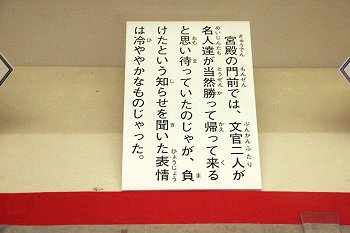 宮殿の門前では　文官二人が
名人達が当然勝って帰って来る
と思い待っていたのじゃが、負
けたという知らせを聞いた表情
は冷ややかなものじゃった。